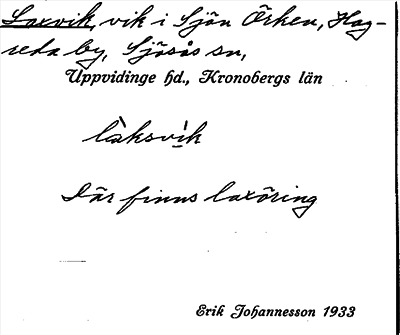 Laxvik, vik i Sjön Örken, Hag-
reda by, Sjösås sn,
Uppvidinge hd., Kronobergs län
làksvi̱k
Där finns laxöring
Erik Johannesson 1933